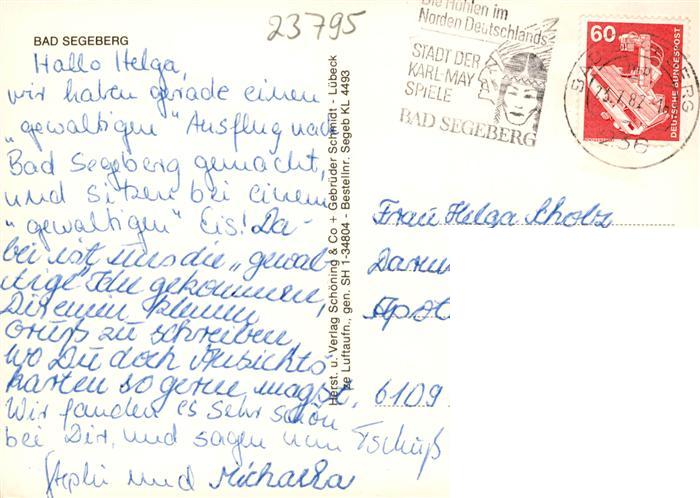 23795
BAD SEGEBERG
Hallo Helga,
wir haben gerade einen
„gewaltigen" Ausflug nach
Bad Segeberg gemacht,
und sitzen bei einem
„gewaltigen" Eis! Da-
bei ist uns die „gewal-
tige" Idee gekommen,
Dir einen kleinen
Gruß zu schreiben
wo Du doch Ansichts
karten so gerne magst.
Wir fanden es sehr schön
bei Dir, und sagen nun Tschüß
Stephi und Michaela
Herst. u. Verlag Schöning & Co + Gebrüder Schmidt - Lübeck
ke Luftaufn., gen. SH 1-34804 - Bestellnr. Segeb KL 4493
Die Höhlen im
Norden Deutschlands
STADT DER
KARL-MAY
SPIELE
BAD SEGEBERG
60
DEUTSCHE BUNDESPOST
Frau Helga Scholz
Darm
Apot
6109